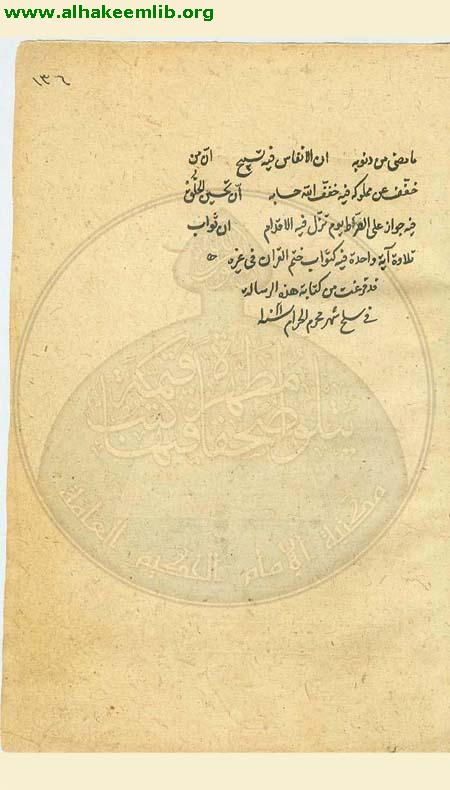 www.alhakeemlib.org
١٣٦
ما مضى من ذنوبه ان الانفاس فيه تسبيح ان من
خفف عن مملوكه فيه خفف الله حسابه ان تحسين الخلق
فيه جواز على الصراط يوم تزل فيه الاقدام ان ثواب
تلاوة آية واحدة فيه كثواب ختم القران فى غيره
قد فرغت من كتابة هذه الرسالة
في سلخ شهر محرم الحرام
مطهرة قيمة
يتلو صحفا فيها كتب
مكتبة الإمام الحكيم العامة